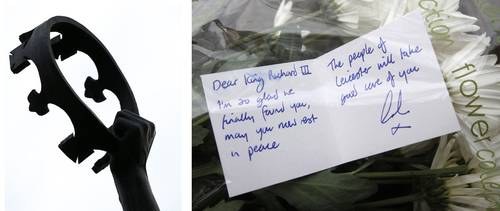 Dear King Richard III
I'm so glad we
finally found you,
may you now rest
in peace
The people of
Leicester will take
good care of you
x
flower